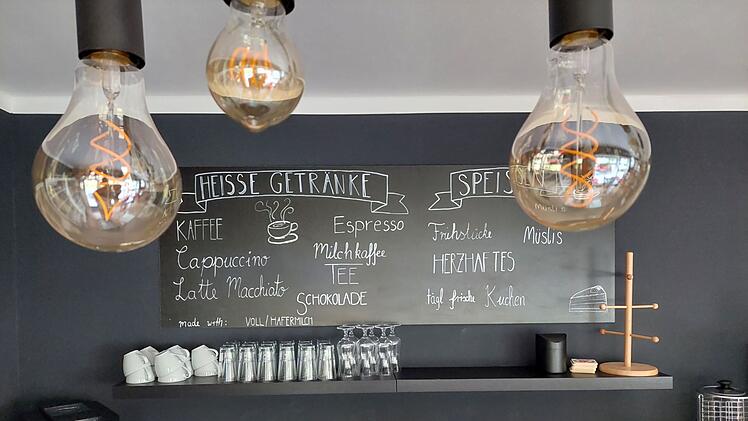 HEISSE GETRÄNKE
KAFFEE
Espresso
Cappuccino
Milchkaffee
TEE
Latte Macchiato
SCHOKOLADE
made with: VOLL/HAFERMILCH
Frühstücke
Müslis
HERZHAFTES
tägl frische Kuchen